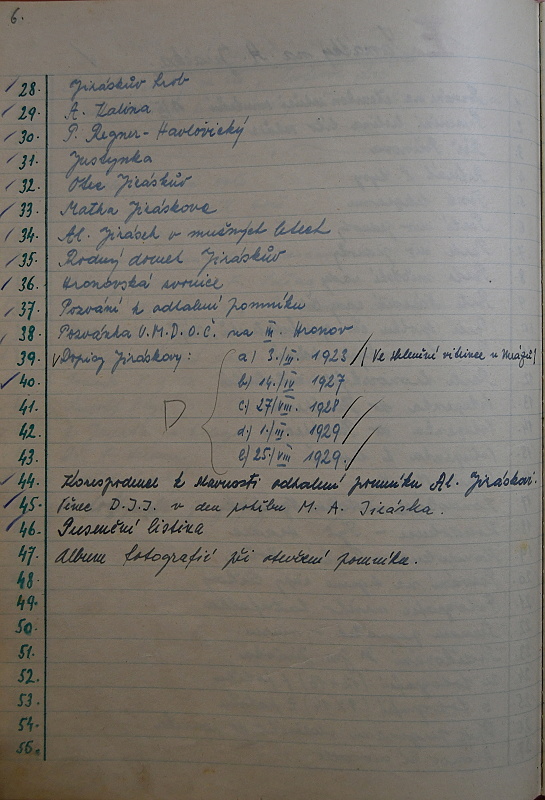 6.
28. Jiráskův hrob
29. A. Kalina
30. P. Regner-Havlovický
31. Justynka
32. Otec Jiráskův
33. Matka Jiráskova
34. Al. Jirásek v mužných letech
35. Rodný domek Jiráskův
36. Hronovská svornice
37. Pozvání k odhalení pomníku
38. Pozvánka Ú.M.D.O.Č. na III. Hronov
39. Dopisy Jiráskovy: a) 3./III. 1923 (Ve skleněné vitrince u Mrázů)
40. b) 14./IV 1927
41. c) 27/VIII. 1928
42. D d) 1./III. 1929
43. e) 25./VIII 1929.
44. Korespodence k slavnosti odhalení pomníku Al. Jiráskovi.
45. Věnec D.J.J. v den pohřbu M. A. Jiráska.
46. Presenční listina
47. Album fotografií při otevření pomníku.
48.
49.
50.
51.
52.
53.
54.
55.